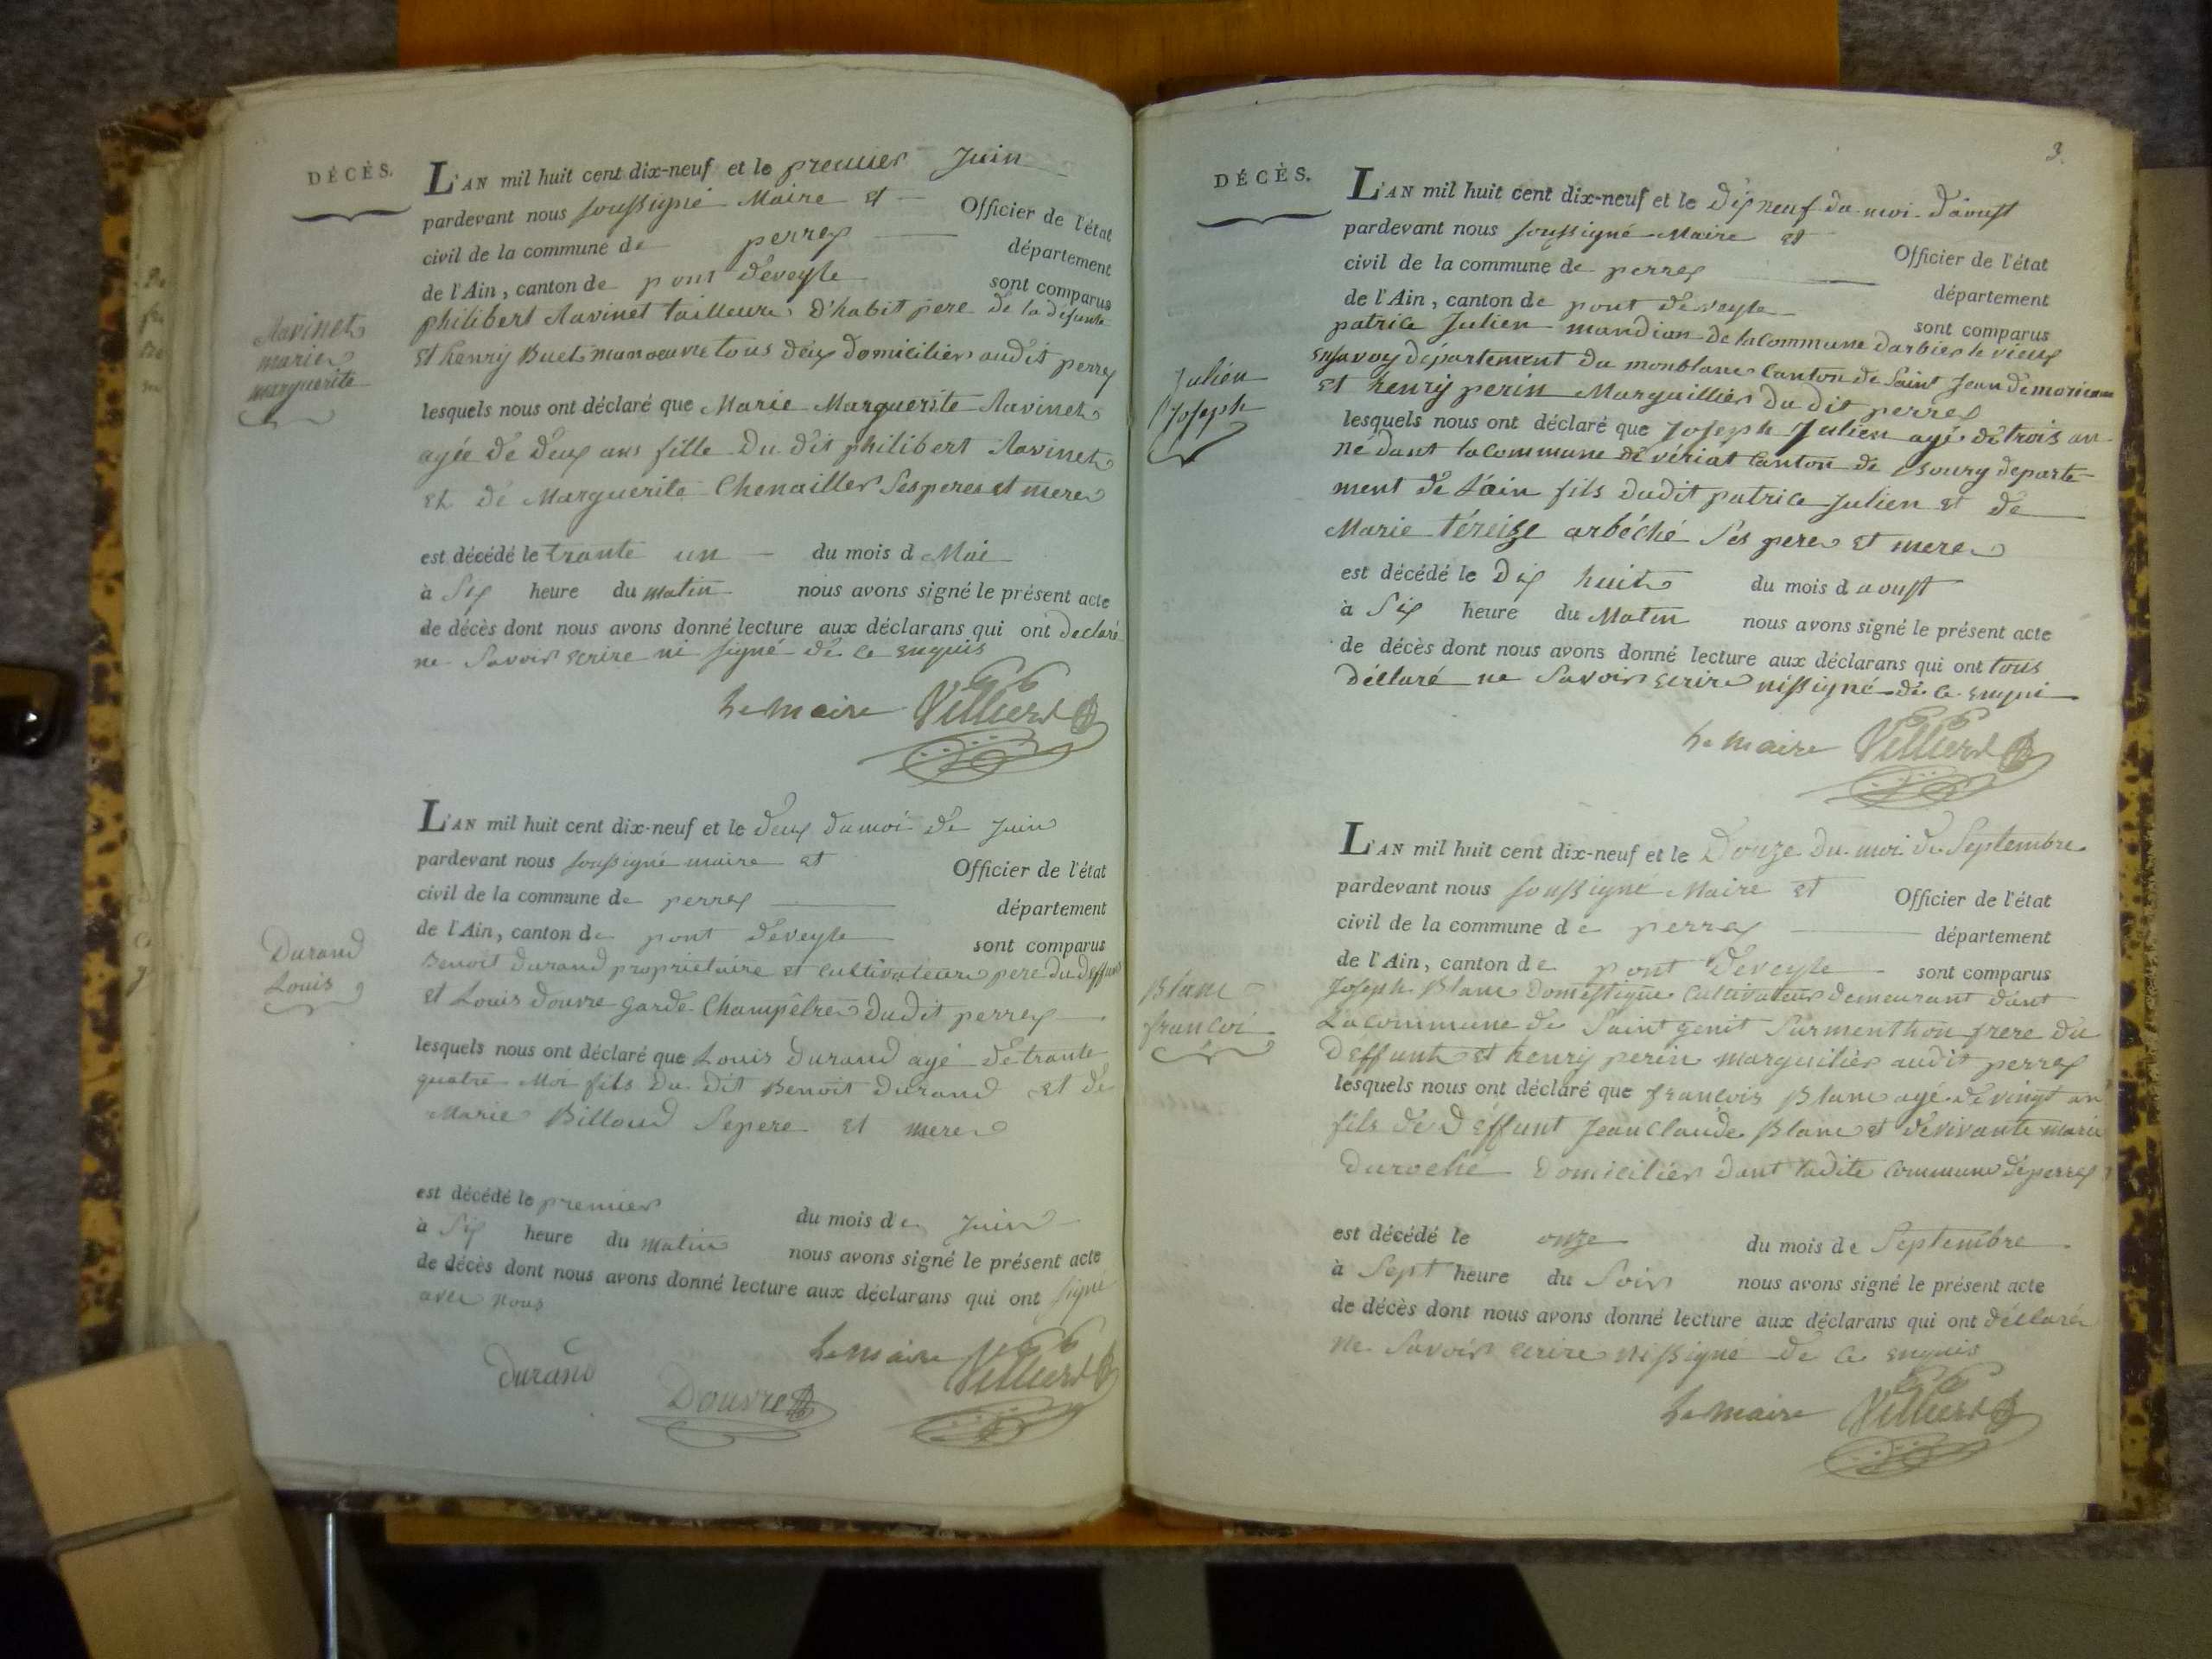 DÉCÈS.
L'AN mil huit cent dix-neuf et le premier Juin
pardevant nous soussigné Maire et Officier de l'état
civil de la commune de perrex département
de l'Ain, canton de pont deveyle sont comparus
philibert Ravinet tailleure d'habit pere de la defunte
et henry Buet manoeuvre tous deux domicilier audit perrex
Ravinet
marie
marguerite
lesquels nous ont déclaré que Marie Marguerite Ravinet
agée de deux ans fille du dit philibert Ravinet
et de Marguerite Chenailler ses peres et mere
est décédé le trante un du mois d Mai
à six heure du matin nous avons signé le présent acte
de décès dont nous avons donné lecture aux déclarans qui ont declaré
ne savoir ecrire ni signé de ce enquis
Le maire Villierd
L'AN mil huit cent dix-neuf et le deux du moi de Juin
pardevant nous soussigné maire et Officier de l'état
civil de la commune de perrex département
de l'Ain, canton de pont deveyle sont comparus
Benoit durand proprietaire et cultivateure pere du deffunt
et Louis douvre garde Champêtre dudit perrex
Durand
Louis
lesquels nous ont déclaré que Louis durand agé de trante
quatre Moi fils du dit Benoit durand et de
Marie Billoud se pere et mere
est décédé le premier du mois de Juin
à six heure du matin nous avons signé le présent acte
de décès dont nous avons donné lecture aux déclarans qui ont signé
avec nous
Le maire Villierd
durand
Douvre
3.
DÉCÈS.
L'AN mil huit cent dix-neuf et le dix neuf du moi d'aoust
pardevant nous soussigné Maire et Officier de l'état
civil de la commune de perrex département
de l'Ain, canton de pont deveyle sont comparus
patrice Julien mandian de la commune darbier le vieux
en savoy département du monblanc canton de Saint Jean de
et henry perin Marguillier du dit perrex
Julien
Joseph
lesquels nous ont déclaré que Joseph Julien agé de trois an
né dant la commune de vériat canton de Bourg departe-
ment de l'ain fils dudit patrice Julien et de
Marie téreize arbéché ses pere et mere
est décédé le dix huit du mois d aoust
à six heure du Matin nous avons signé le présent acte
de décès dont nous avons donné lecture aux déclarans qui ont tous
déclaré ne savoir ecrire ni signé de ce enqui
Le maire Villierd
L'AN mil huit cent dix-neuf et le Douze du moi de Septembre
pardevant nous soussigné Maire et Officier de l'état
civil de la commune de perrex département
de l'Ain, canton de pont deveyle sont comparus
Joseph Blanc domestique cultivateur demeurant dant
La commune de Saint genit surmenthon frere du
deffunt et henry perin marguilier audit perrex
Blanc
francoi
lesquels nous ont déclaré que francois Blanc agé de vingt an
fils de deffunt Jean Claude Blanc et de vivante marie
duroché domicilier dant ladite commune de perrex
est décédé le onze du mois de Septembre
à Sept heure du Soir nous avons signé le présent acte
de décès dont nous avons donné lecture aux déclarans qui ont déclaré
ne savoir ecrire ni signé de ce enquis
Le maire Villierd